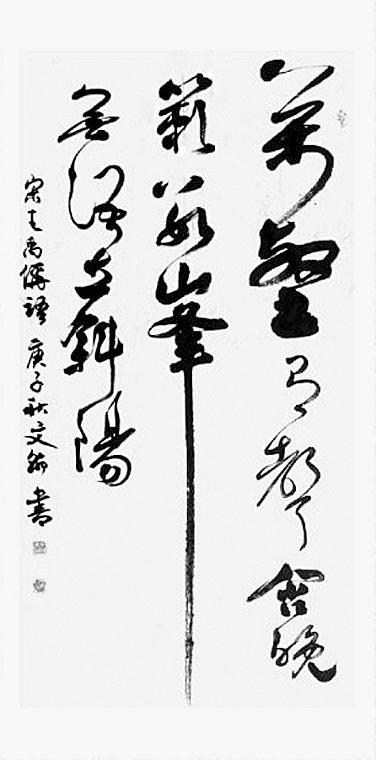 萬壑有聲含晚
籟數峯
無語立斜陽
宋王禹偁詩 庚子秋文 書